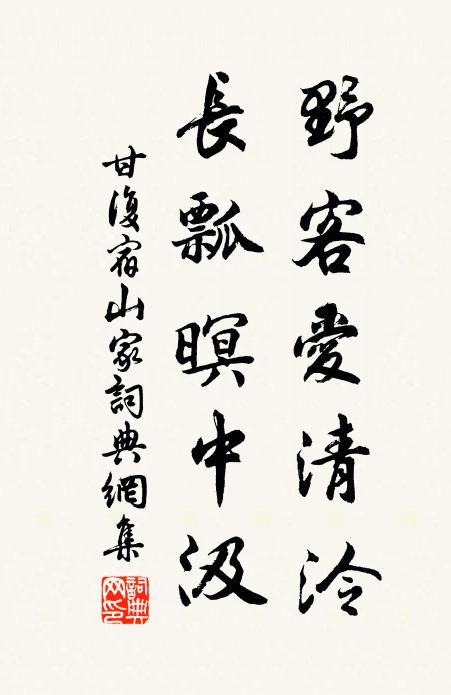 野客愛清泠
長瓢暝中汲
甘復宿山家詞典網集
詞典網印